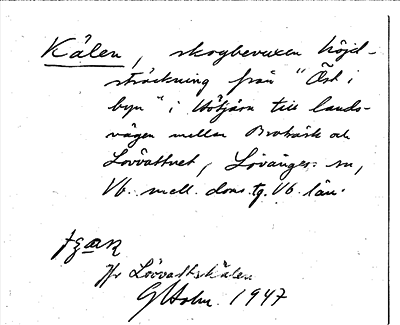 Kälen, skogbevuxen höjd-
sträckning från "Öst i
byn" i Hötjärn till lands-
vägen mellan Broträsk och
Lövvattnet, Lövångers sn,
Vb. mell. doms.tg. Vb. län.
Jfr Lövvattskälen
G Holm. 1947